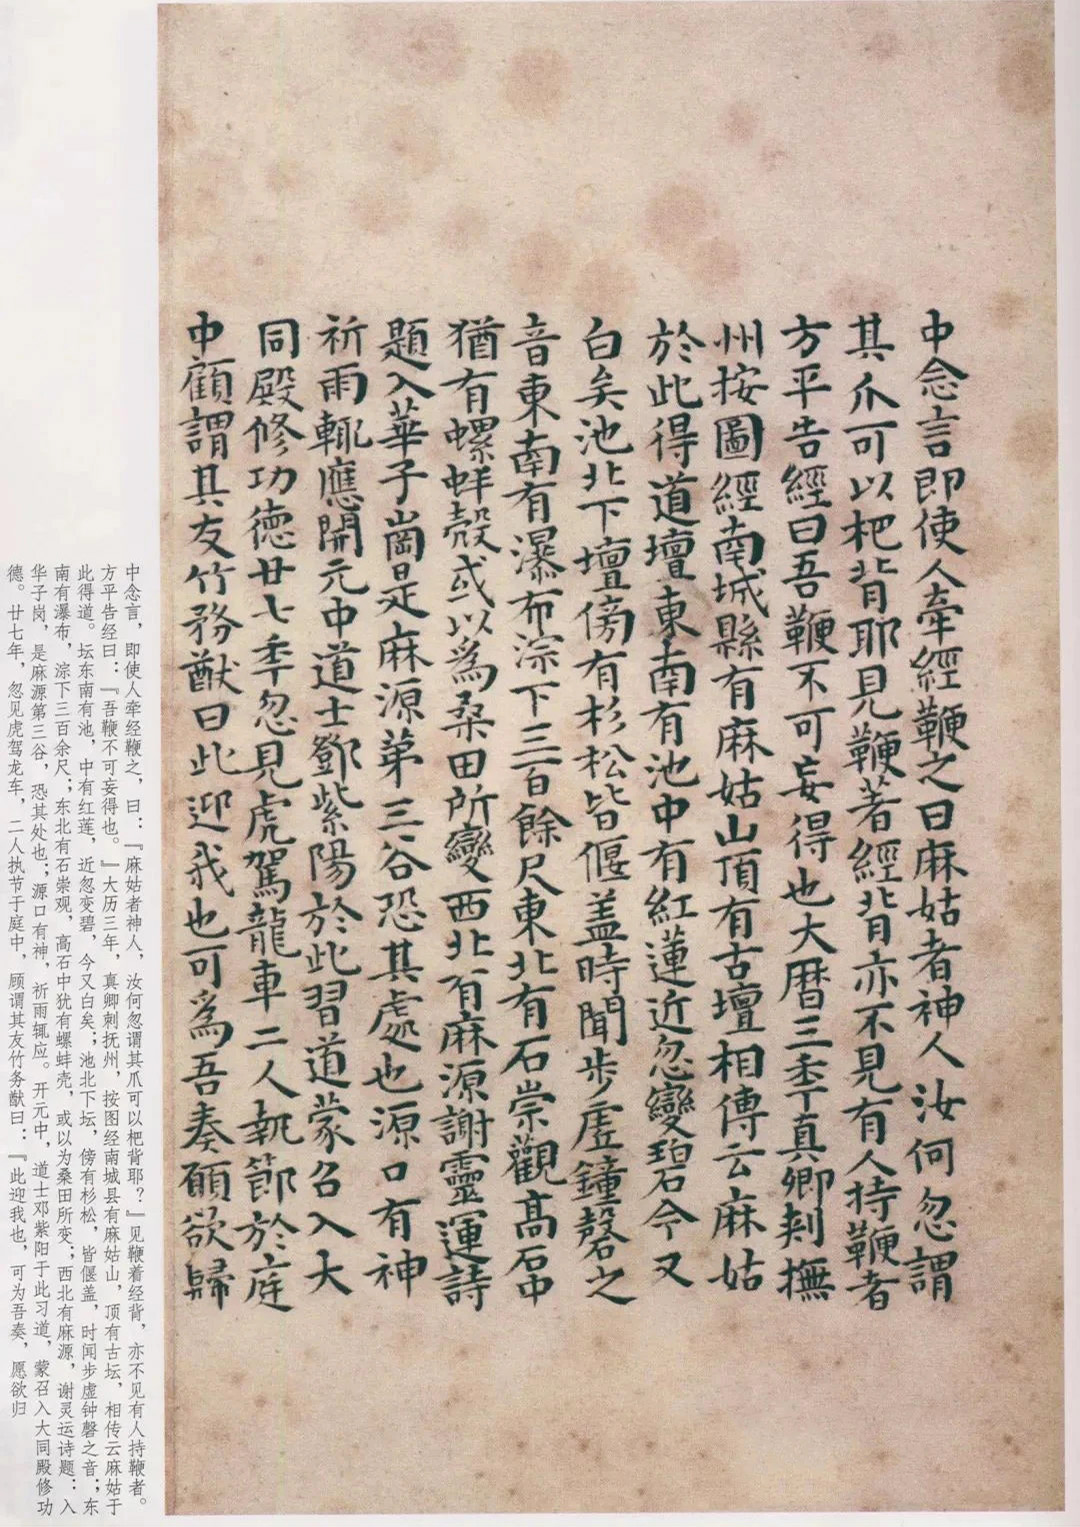 中念言即使人牽經鞭之曰麻姑者神人汝何忽謂
其爪可以杷背耶見鞭著經背亦不見有人持鞭者
方平告經曰吾鞭不可妄得也大曆三秊真卿刾撫
州按圖經南城縣有麻姑山頂有古壇相傳云麻姑
於此得道壇東南有池中有紅蓮近忽變碧今又
白矣池北下壇傍有杉松皆偃蓋時聞步虛鐘磬之
音東南有瀑布淙下三百餘尺東北有石崇觀高石中
猶有螺蚌殼或以為桑田所變西北有麻源謝靈運詩
題入華子崗是麻源弟三谷恐其處也源口有神
祈雨輒應開元中道士鄧紫陽於此習道蒙召入大
同殿修功德廿七秊忽見虎駕龍車二人執節於庭
中顧謂其友竹務猷曰此迎我也可為吾奏願欲歸
中念言，即使人牵经鞭之，曰：『麻姑者神人，汝何忽谓其爪可以杷背耶？』见鞭着经背，亦不见有人持鞭者。
方平告经曰：『吾鞭不可妄得也。』大历三年，真卿刺抚州，按图经南城县有麻姑山，顶有古坛，相传云麻姑于
此得道。坛东南有池，中有红莲，近忽变碧，今又白矣；池北下坛，傍有杉松，皆偃盖，时闻步虚钟磬之音；东
南有瀑布，淙下三百余尺；东北有石崇观，高石中犹有螺蚌壳，或以为桑田所变；西北有麻源，谢灵运诗题：入
华子岗，是麻源第三谷，恐其处也；源口有神，祈雨辄应。开元中，道士邓紫阳于此习道，蒙召入大同殿修功
德。廿七年，忽见虎驾龙车，二人执节于庭中，顾谓其友竹务猷曰：『此迎我也，可为吾奏，愿欲归